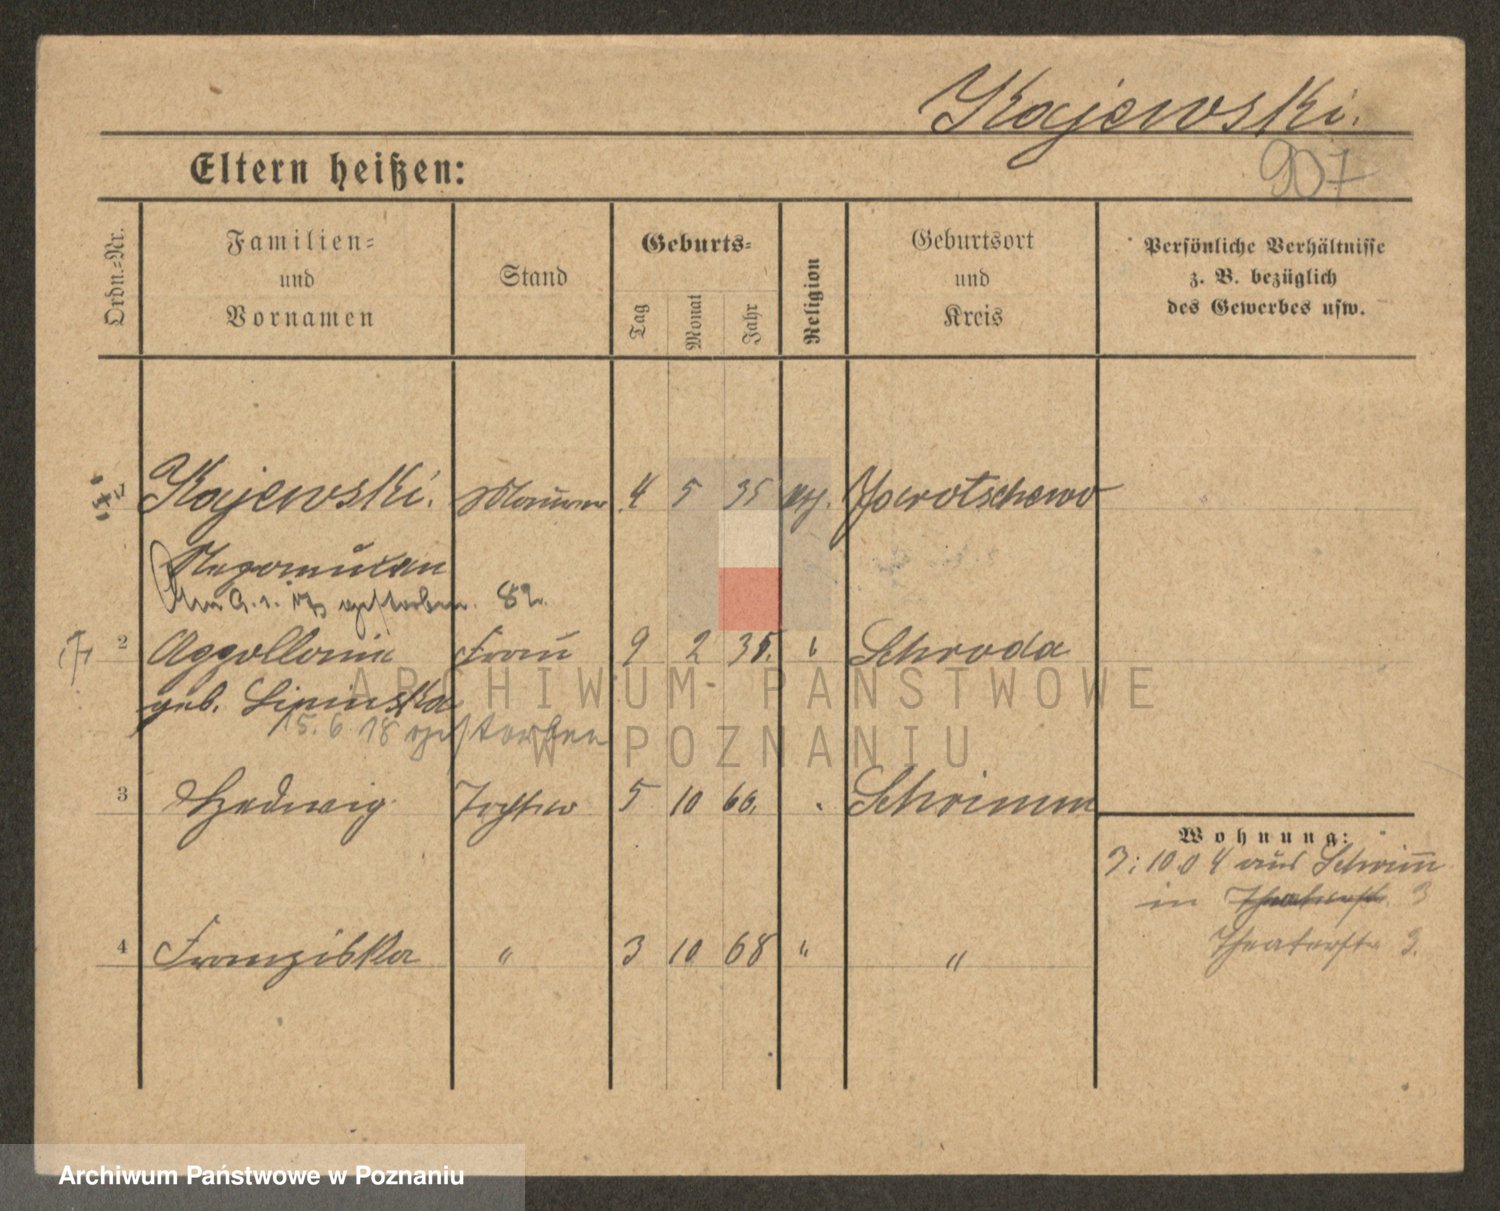 Kajewski.
907
Eltern heißen:
Ordn.-Nr.
Familien-
und
Vornamen
Stand
Geburts-
Tag
Monat
Jahr
Religion
Geburtsort
und
Kreis
Persönliche Verhältnisse
z. B. bezüglich
des Gewerbes usw.
1 Kajewski. Maurer 4 5 35 Jarotschewo
Nepomucen
gestorben. 82
2 Appollonia Frau 9 2 35. " Schroda
geb. Lipinska
15. 6 18 gestorben
3 Hedwig Tochter 5 10 66. " Schrimm
Wohnung:
3. 10 04 aus Schrimm
in Theaterstr. 3
Theaterstr 3.
4 Franziska " 3 10 68 " "
ARCHIWUM PAŃSTWOWE
W POZNANIU
Archiwum Państwowe w Poznaniu